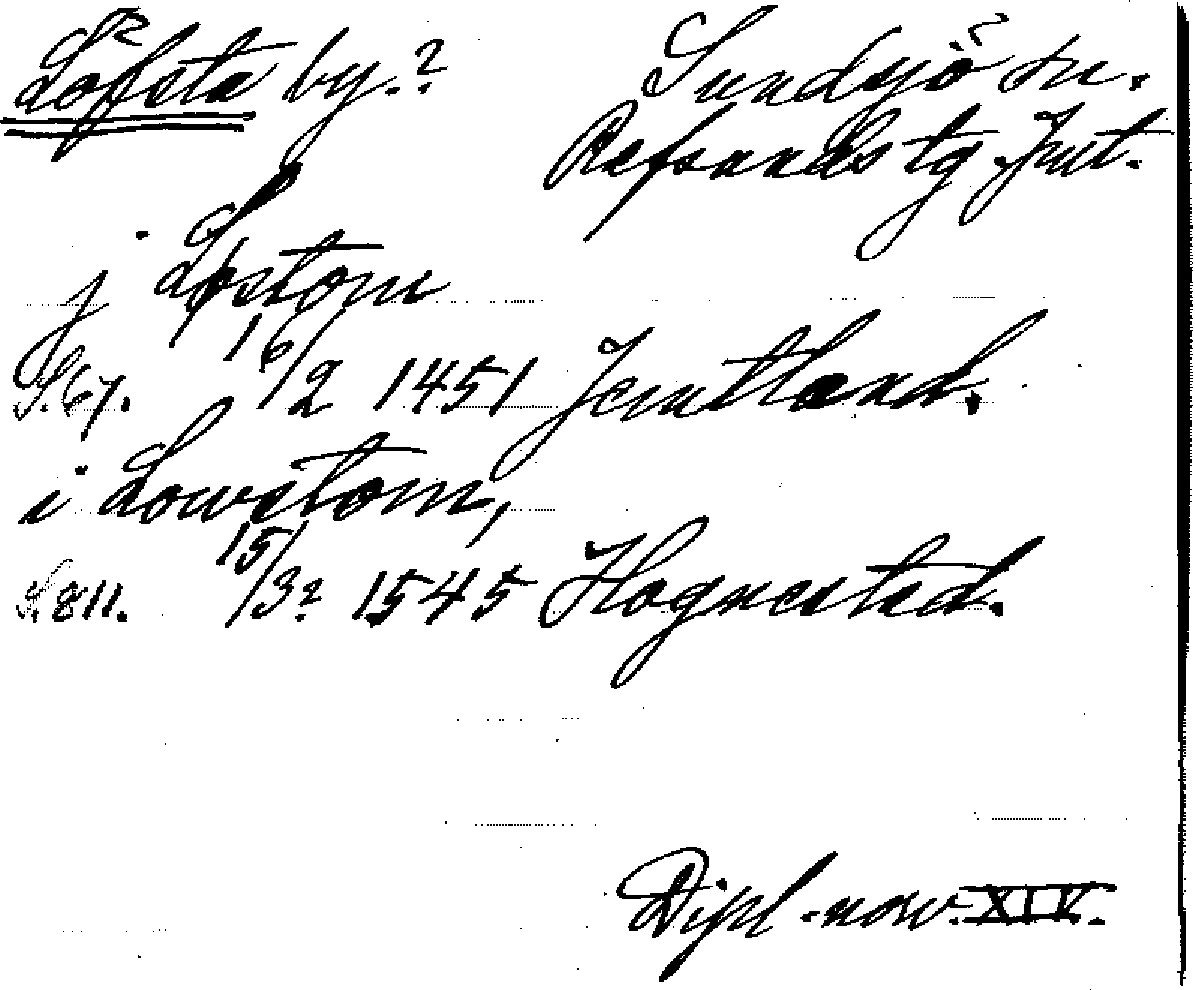 Löfsta by.? Sundsjö sn.
Refsunds tg. Jmt.
j Løstom
S. 67. 16/2 1451 Jemtland.
i Lowstom,
S. 811. 15/3? 1545 Hognestad.
Dipl. norv. XIV.